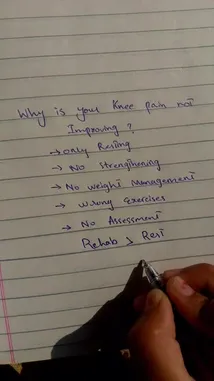 Why is your Knee pain not
Improving?
→ Only Resting
→ No Strengthening
→ No Weight Management
→ Wrong Exercises
→ No Assessment
Rehab > Rest